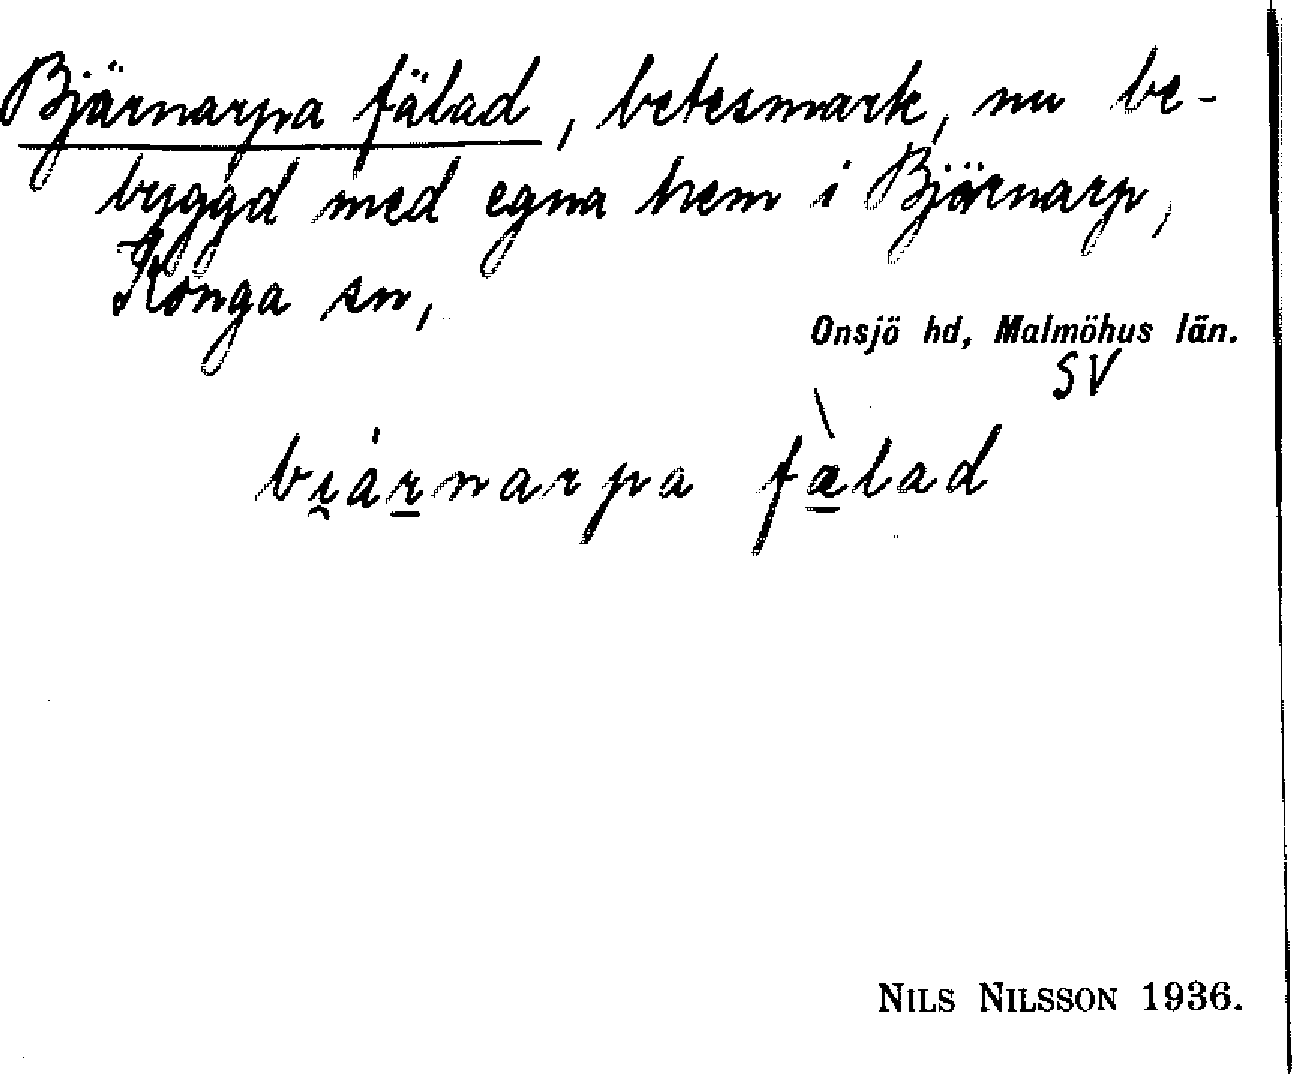 Bjärnarpa fälad, betesmark, nu be-
byggd med egna hem i Bjärnarp,
Konga sn,
Onsjö hd, Malmöhus län.
SV
bi̯ȧr̲narpa fæ̲̀lad
NILS NILSSON 1936.